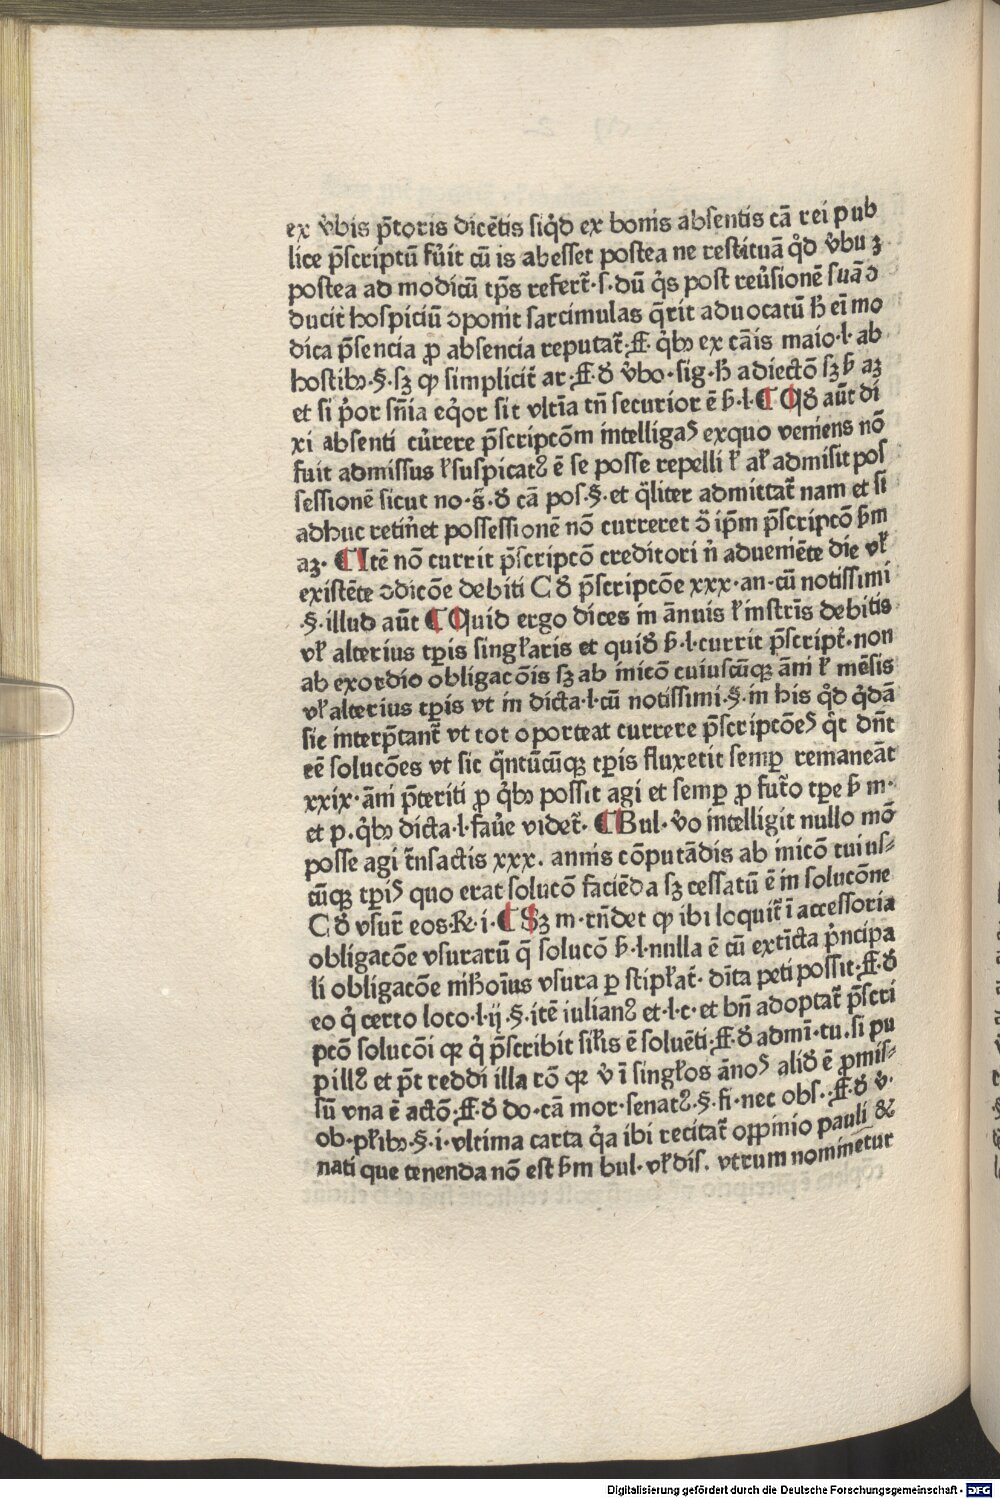 ex v̾bis p̄toris dicētis siq̇d ex bonis absentis cā rei pub
lice p̄scriptū fu̇it cū is abesset postea ne restituā q̇d v̾bū ꝫ
postea ad modicū tp̄s refert̄·s·dū q̇s post reu̾sionē suā ↄ
ducit hospiciū ↄponit sarcinulas q̄rit aduocatū ħ eī mo
dica p̄sencia ꝓ absencia reputat̄·ff·q̇bꝫ ex cāis maio·l·ab
hostibꝫ·§·sꝫ ꝙ simplicit̄ ar·ff·ꝺ̾ v̾bo·sig·ħ adiectō sꝫ ẜ aꝫ
et si p̾or sn̄ia eq̇or sit vltīa tn̄ securior ē ẜ·l·¶ Qꝺ̾ aūt di
xi absenti cu̾rere p̄scriptōm intelligaꝰ exquo veniens nō
fuit admissus ł suspicatꝰ ē se posse repelli ł ał admisit pos
sessionē sicut no·s̄·ꝺ̾ cā pos·§·et q̄liter admittat̄ nam et si
adhuc retin̾et possessionē nō curreret ↄ̄ ip̄m p̄scriptō ẜm
aꝫ· ¶ Itē nō currit p̄scriptō creditori n̾ adueniēte die vł
existēte ↄdicōe debiti C ꝺ̾ p̄scriptōe xxx·an·cū notissimi
·§·illud aūt ¶ Quid ergo dices in ānuis ł instrīs debitis
vł alterius tꝑis singłaris et quiꝺ̾ ẜ·l·currit p̄script̾·non
ab exordio obligacōis sꝫ ab inicō cuiuscūqꝫ āni ł mēsis
vł alterius tꝑis vt in dicta·l·cū notissimi·§·in his q̇d q̇dā
sic interp̄tant̄ vt tot oporteat currere p̄scriptōeꝰ q̇t dn̄t
eē solucōes vt sic q̄ntūcūqꝫ tꝑis fluxerit semꝑ remaneāt
xxix·āni p̄teriti ꝓ q̇bꝫ possit agi et semꝑ ꝓ fut̄o tꝑe ẜ m·
et p·q̇bꝫ dicta·l·fau̾e videt̄· ¶ Bul·v̾o intelligit nullo mō
posse agi t̄nsactis xxx. annis cōputādis ab inicō cuius⸗
cūqꝫ tꝑiꝰ quo erat solucō faciēda sꝫ cessatū ē in solucōne
C ꝺ̾ vsur̄ eos·℞·i·¶ Sꝫ m·rn̄det ꝙ ibi loquit̄ ī accessoria
obligacōe vsurarū q̄ solucō ẜ·l·nulla ē cū extīcta p̾ncipa
li obligacōe niħoīus vsura ꝑ stipłat̄· dīta peti possit·ff·ꝺ̾
eo q̇ certo loco·l·ij·§·itē iulianꝰ et·l·c·et bn̄ adoptat̄ p̄scri
ptō solucōi qꝛ q̇ p̄scribit siłis ē soluēti·ff·ꝺ̾ admī·tu·si pu
pillꝰ et p̄t reddi illa rō qꝛ v̾ ī singłos ānoꝰ aliꝺ̾ ē ꝓmis⸗
sū vna ē actō·ff·ꝺ̾ do·cā mor·senatꝰ·§·fi·nec obs·ff·ꝺ̾ v̾·
ob·płibꝫ·§·i·vltima carta q̇a ibi recitat̄ oppinio pauli &
nati que tenenda nō est ẜm bul·vł dis. vtrum nominetur
Digitalisierung gefördert durch die Deutsche Forschungsgemeinschaft - DFG